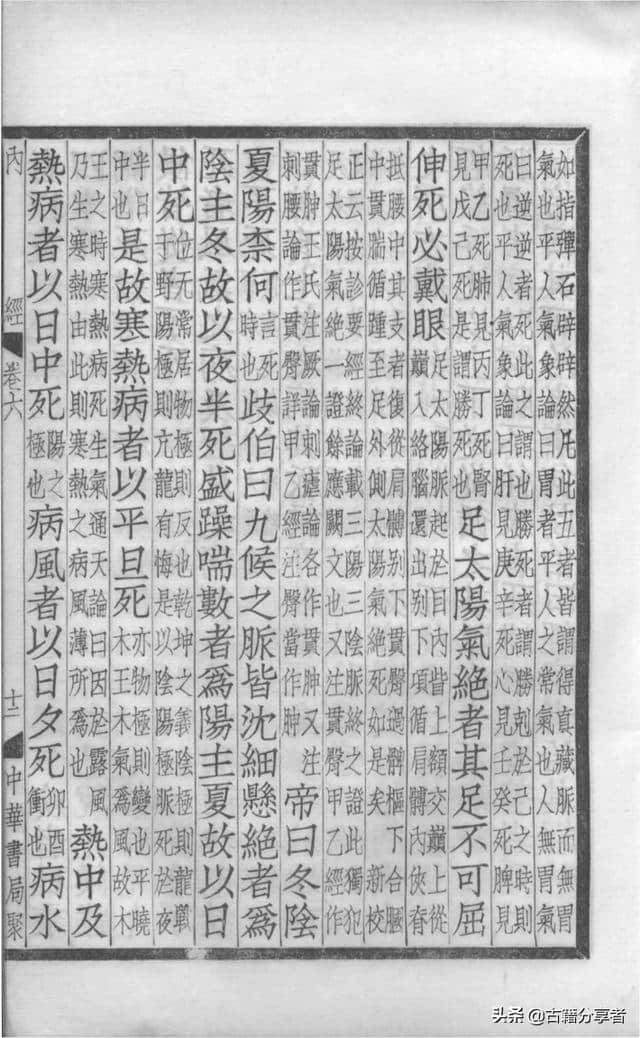 如指彈石辟辟然凡此五者皆謂得真藏脈而無胃
氣也平人氣象論曰胃者平人之常氣也人無胃氣
曰逆逆者死此之謂也勝死者謂勝剋於己之時則
死也平人氣象論曰肝見庚辛死心見壬癸死脾見
甲乙死肺見丙丁死腎見戊己死是謂勝死也足太陽氣絕者其足不可屈
伸死必戴眼足太陽脈起於目內眥上額交巔上從巔入絡腦還出別下項循肩髆內俠脊
抵腰中其支者復從肩髆別下貫臀過髀樞下合膕
中貫腨循踵至足外側太陽氣絕死如是矣 新校
正云按診要經終論載三陽三陰脈終之證此獨犯
足太陽氣絕一證餘應闕文也又注貫臀甲乙經作
貫胂王氏注厥論刺瘧論各作貫胂又注刺腰論作貫臀詳甲乙經注臀當作胂帝曰冬陰
夏陽柰何言死時也歧伯曰九候之脈皆沈細懸絕者為
陰主冬故以夜半死盛躁喘數者為陽主夏故以日
中死位无常居物極則反也乾坤之義陰極則龍戰于野陽極則亢龍有悔是以陰陽極脈死於夜
半日中也是故寒熱病者以平旦死亦物極則變也平曉木王木氣為風故木
王之時寒熱病死生氣通天論曰因於露風乃生寒熱由此則寒熱之病風薄所為也熱中及
熱病者以日中死陽之極也病風者以日夕死卯酉衝也病水
內經 卷六 十二 中華書局聚
头条 @古籍分享者